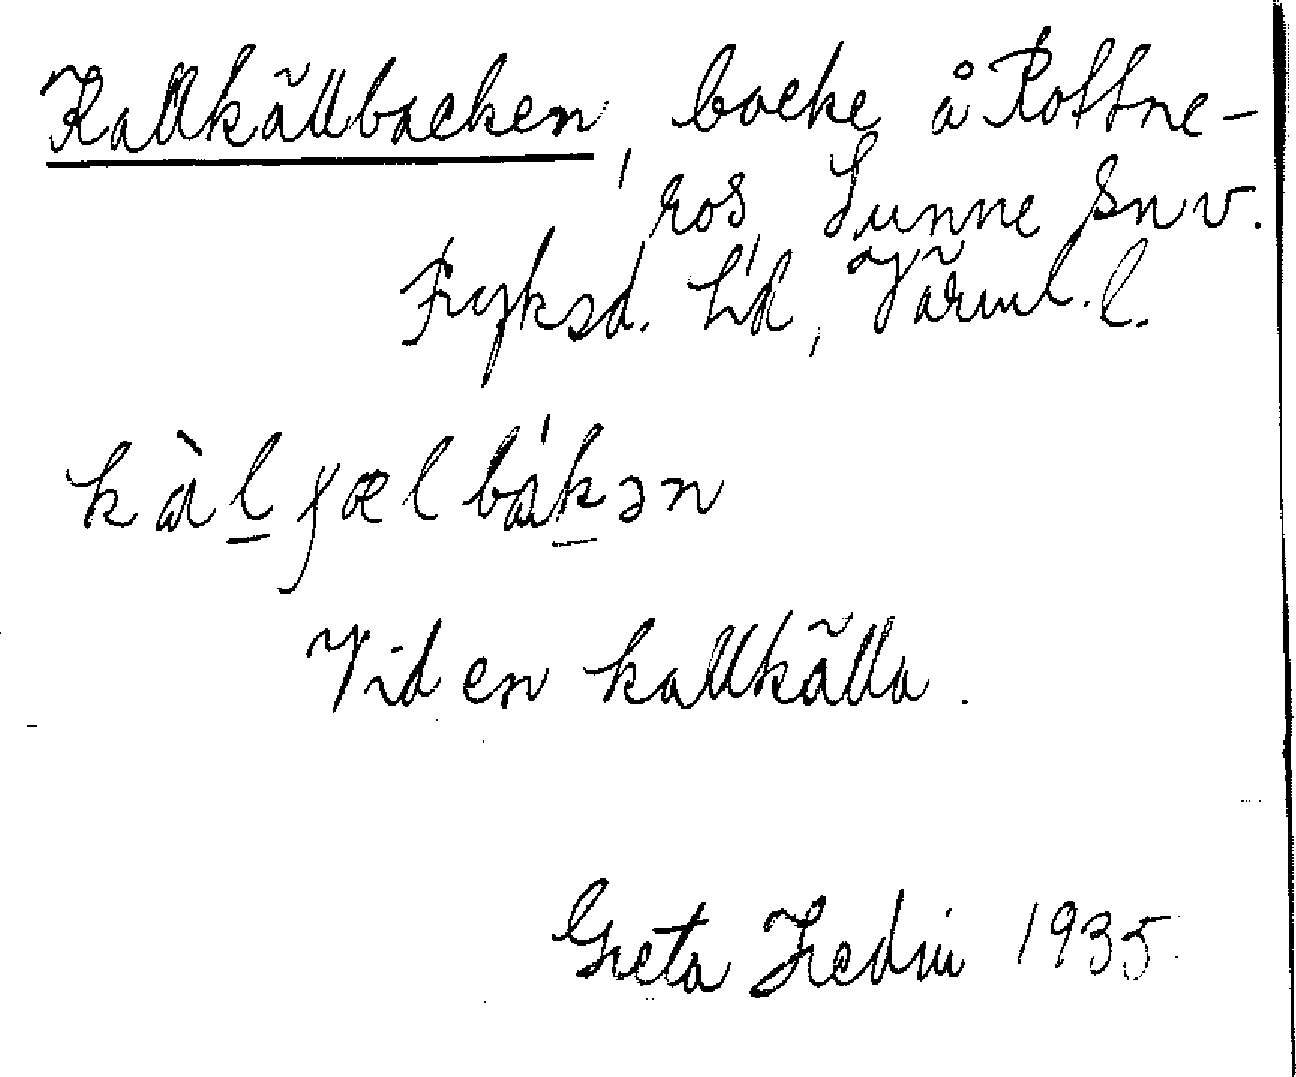 Kallkällbacken, backe å Rottne-
ros, Sunne sn v.
Fryksd. hd, Värml. l.
kàl̲ʃælbákən
Vid en kallkälla.
Greta Hedin 1935.